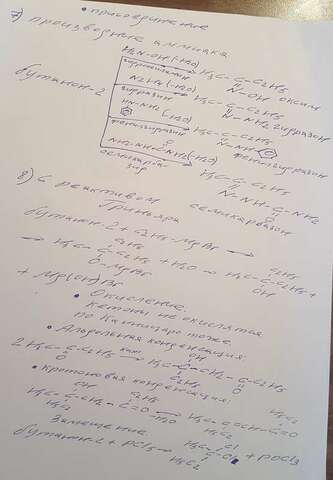 • присоединение
7) производные аммиака
H2N-OH (-H2O)
гидроксиламин
H3C-C-C2H5
N-OH оксим
N2H4 (-H2O)
гидразин
H3C-C-C2H5
N-NH2 гидразон
бутанон-2
HN-NH2 (-H2O)
фенилгидразин
H3C-C-C2H5
N-NH фенилгидразон
NH2-NH-C-NH2 (-H2O)
O
семикарбазид
H3C-C-C2H5
N-NH-C-NH2
O
семикарбазон
8) с реактивом Гриньяра
бутанон-2 + C2H5-MgBr →
C2H5 C2H5
→ H3C-C-C2H5 + H2O → H3C-C-C2H5 +
O-MgBr OH
+ Mg(OH)Br
• Окисление.
кетоны не окислятся
по Канниццаро тоже.
• Альдольная конденсация:
OH
2 H3C-C-C2H5 → H3C-C-CH2-C-C2H5
O C2H5 O
• Кротоновая конденсация:
OH C2H5 H5C2
H3C-C-CH2-C=O → H3C-C=CH-C=O
H5C2 -H2O H5C2
Замещение
Cl
бутанон-2 + PCl5 → H3C-C-Cl + POCl3
H5C2